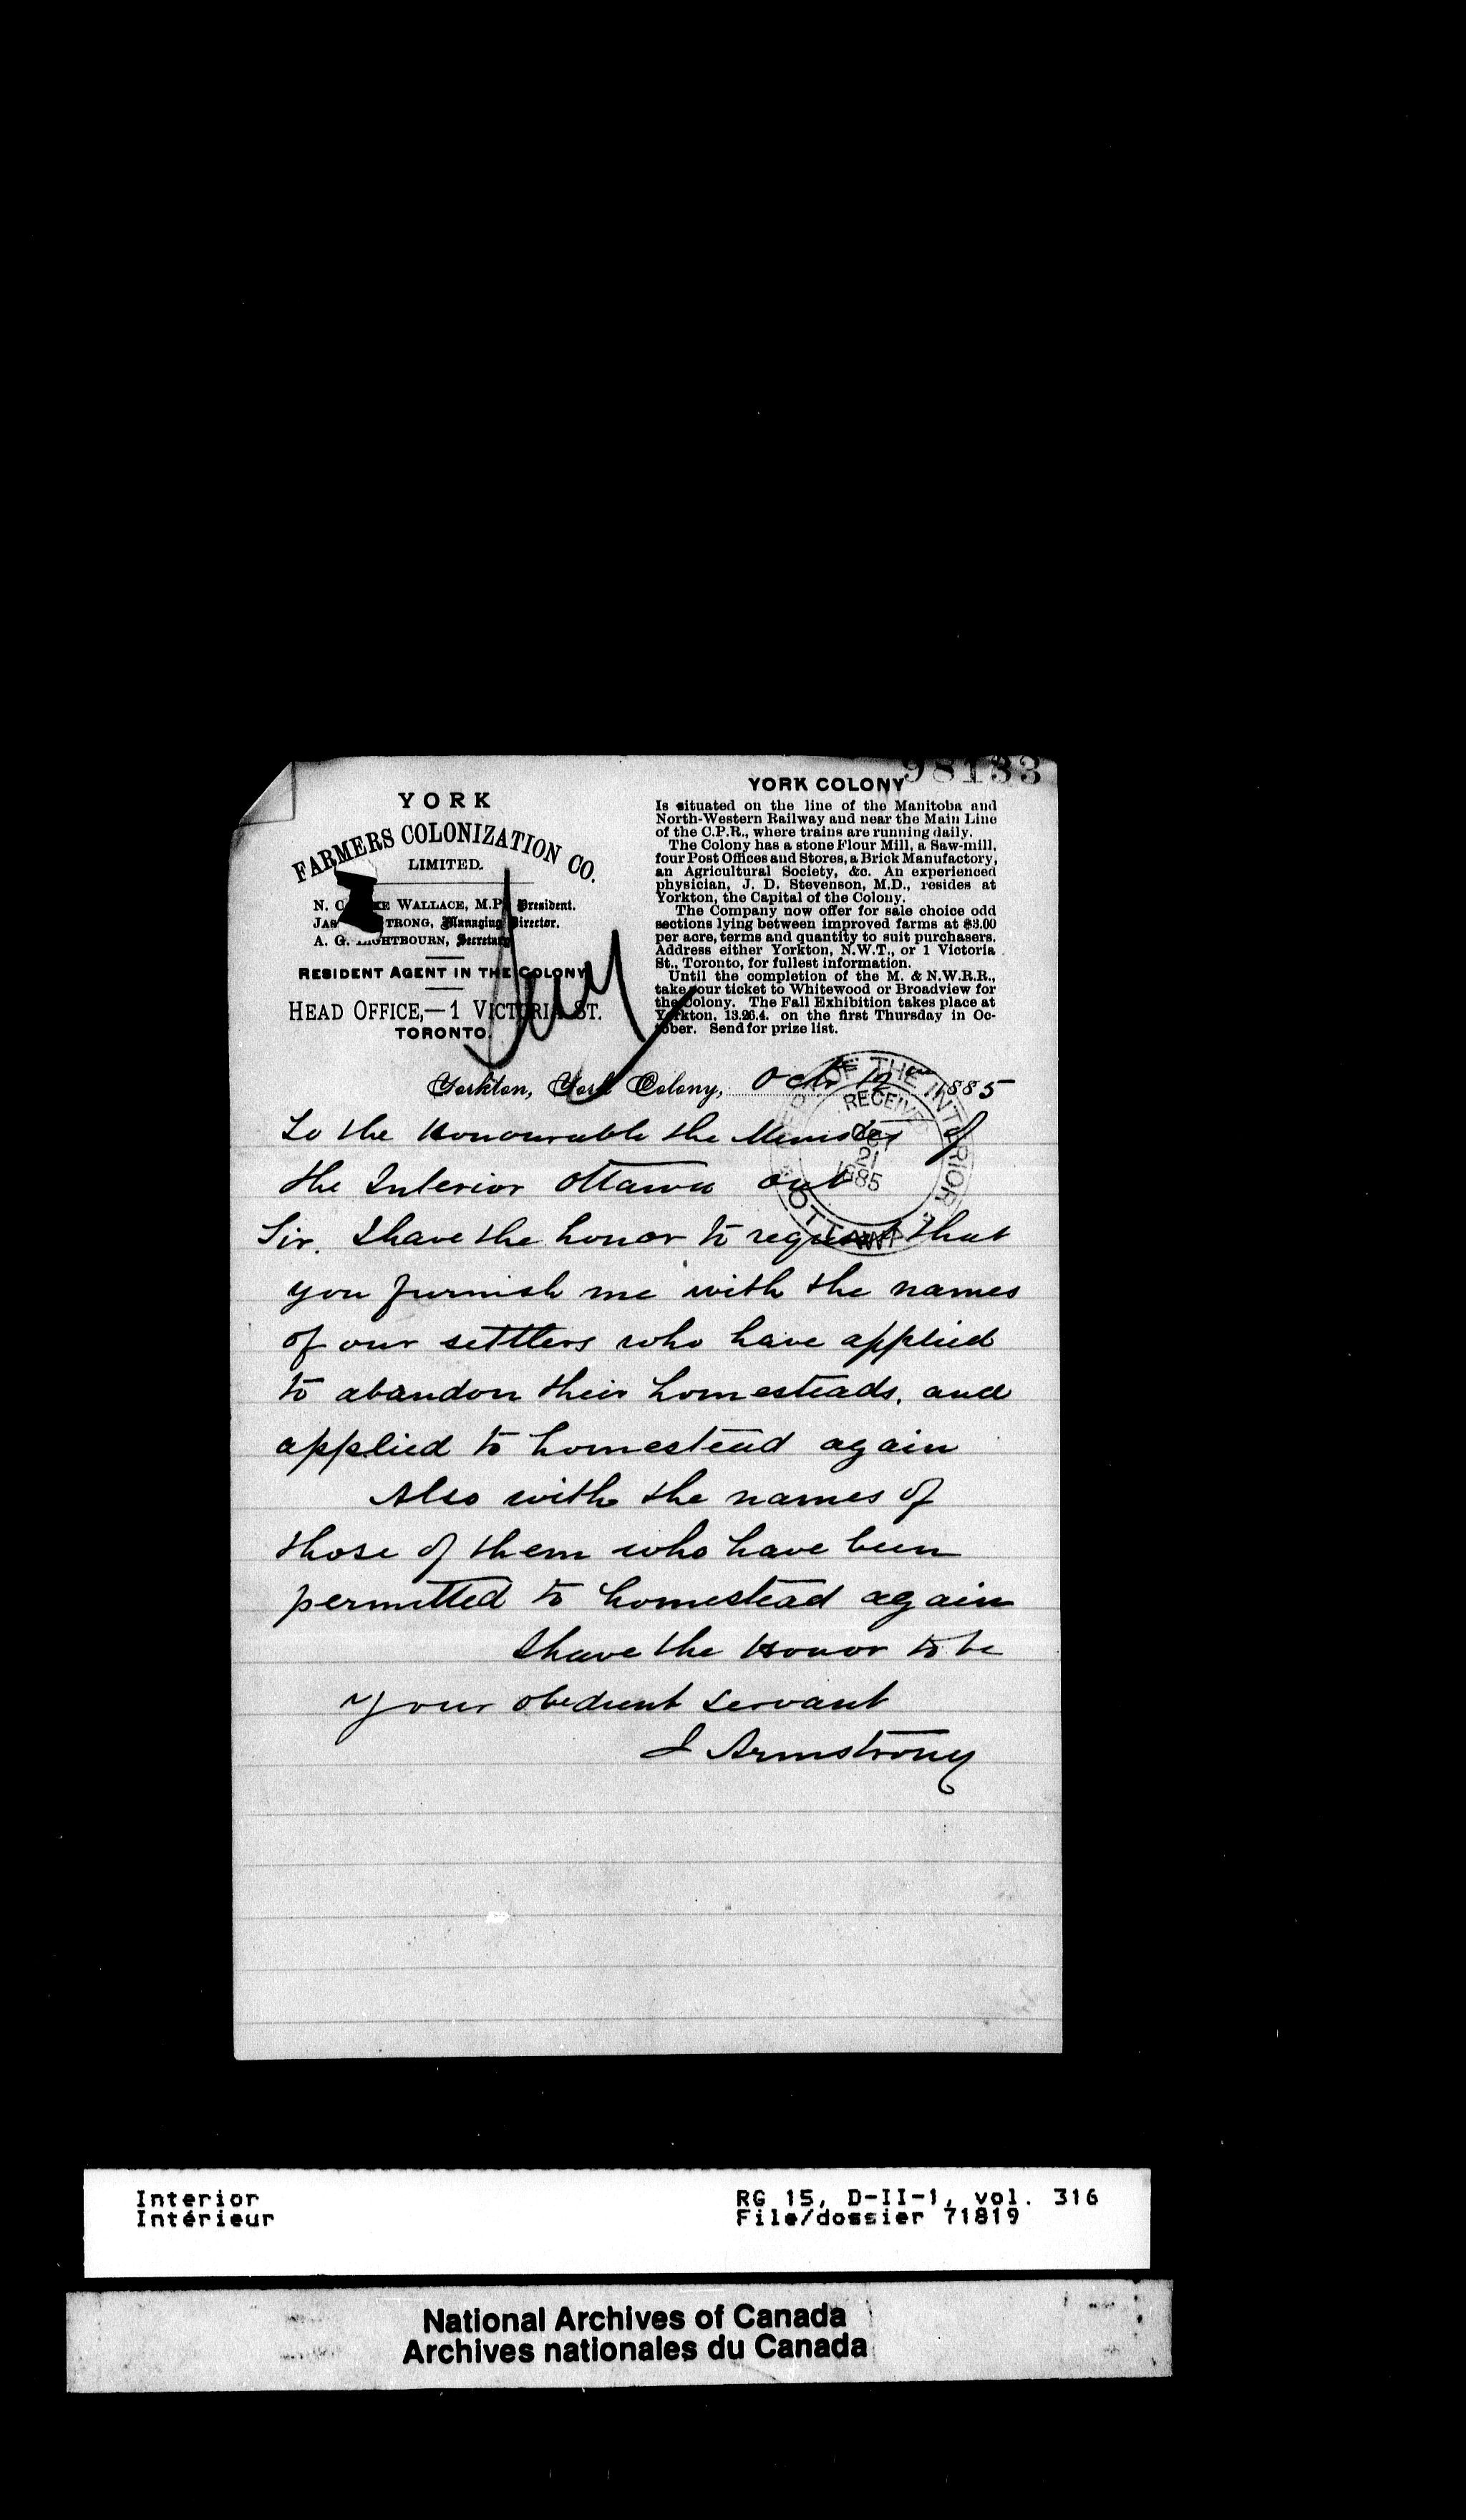 98133
YORK
FARMERS COLONIZATION CO.
LIMITED.
N. C KE WALLACE, M.P. President.
JAS TRONG, Managing Director.
A. G. LIGHTBOURN, Secretary
RESIDENT AGENT IN THE COLONY
HEAD OFFICE,—1 VICTORIA ST.
TORONTO.
YORK COLONY
Is situated on the line of the Manitoba and
North-Western Railway and near the Main Line
of the C.P.R., where trains are running daily.
The Colony has a stone Flour Mill, a Saw-mill,
four Post Offices and Stores, a Brick Manufactory,
an Agricultural Society, &c. An experienced
physician, J. D. Stevenson, M.D., resides at
Yorkton, the Capital of the Colony.
The Company now offer for sale choice odd
sections lying between improved farms at $3.00
per acre, terms and quantity to suit purchasers.
Address either Yorkton, N.W.T., or 1 Victoria
St., Toronto, for fullest information.
Until the completion of the M. & N.W.R.R.,
take your ticket to Whitewood or Broadview for
the Colony. The Fall Exhibition takes place at
Yorkton, 13.26.4. on the first Thursday in Oc-
tober. Send for prize list.
Yorkton, York Colony, Oct 12th 1885
DEPT OF THE INTERIOR
RECEIVED
OCT
21
1885
OTTAWA
To the Honourable the Minister of
the Interior Ottawa Ont
Sir. I have the honor to request that
you furnish me with the names
of our settlers who have applied
to abandon their homesteads. and
applied to homestead again
Also with the names of
those of them who have been
permitted to homestead again
I have the Honor to be
Your obedient servant
J Armstrong
Interior
Intérieur
RG 15, D-II-1, vol. 316
File/dossier 71819
National Archives of Canada
Archives nationales du Canada